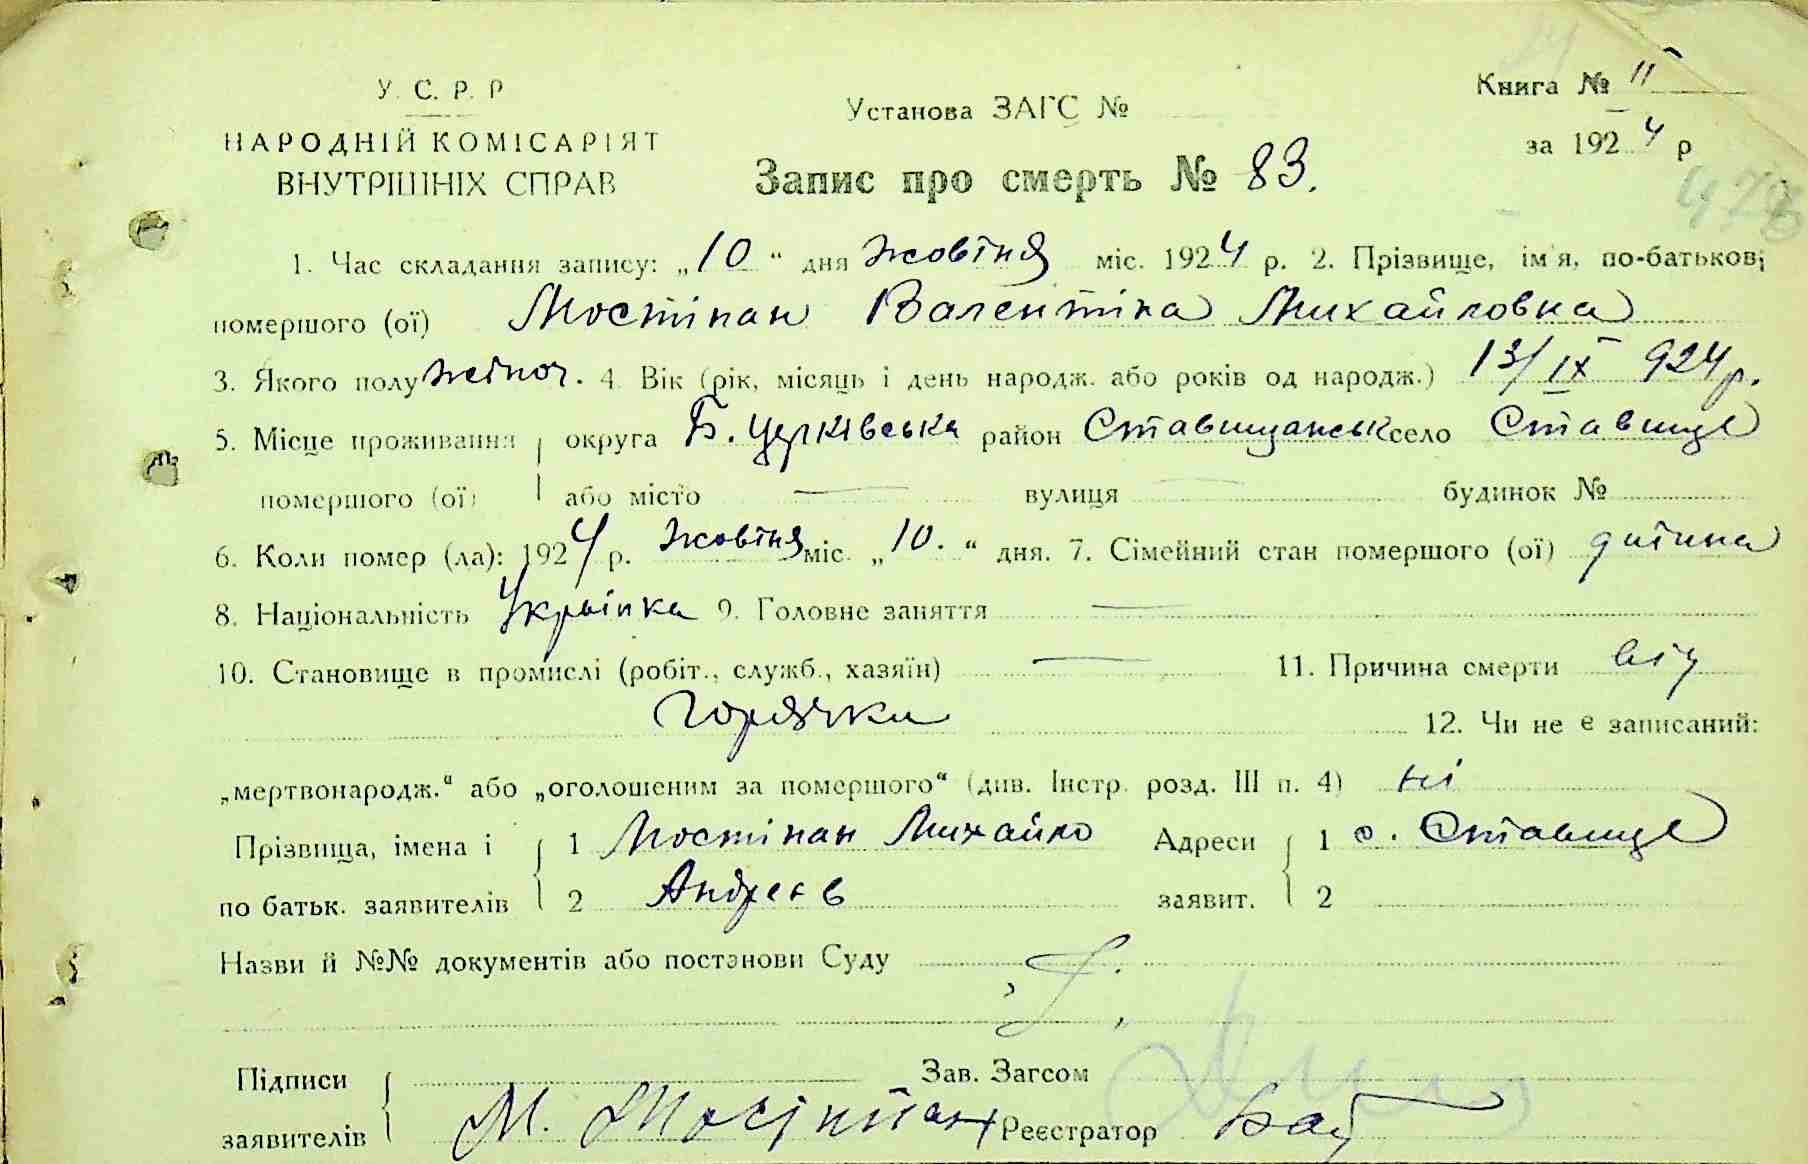 У. С. Р. Р
Установа ЗАГС №
Книга № II
НАРОДНІЙ КОМІСАРІЯТ
за 1924 р
ВНУТРІШНІХ СПРАВ
Запис про смерть № 83.
478
1. Час складання запису: „10“ дня жовтня міс. 1924 р. 2. Прізвище, ім'я, по-батькові
помершого (ої) Мостіпан Валентіна Михайловна
3. Якого полу жіноч. 4. Вік (рік, місяць і день народж. або років од народж.) 13/IX 924 р.
5. Місце проживання округа Б. Церківська район Ставищанськ село Ставище
помершого (ої) або місто — вулиця — будинок №
6. Коли помер (ла): 1924 р. жовтня міс. „10.“ дня. 7. Сімейний стан помершого (ої) дитина
8. Національність Украінка 9. Головне заняття —
10. Становище в промислі (робіт., служб., хазяїн) — 11. Причина смерти від
горячки 12. Чи не є записаний:
„мертвонародж.“ або „оголошеним за помершого“ (див. Інстр. розд. III п. 4) ні
Прізвища, імена і 1 Мостіпан Михайло Адреси 1 с. Ставище
по батьк. заявителів 2 Андреєв заявит. 2
Назви й №№ документів або постанови Суду
Підписи Зав. Загсом
заявителів М. Мостіпан Реєстратор